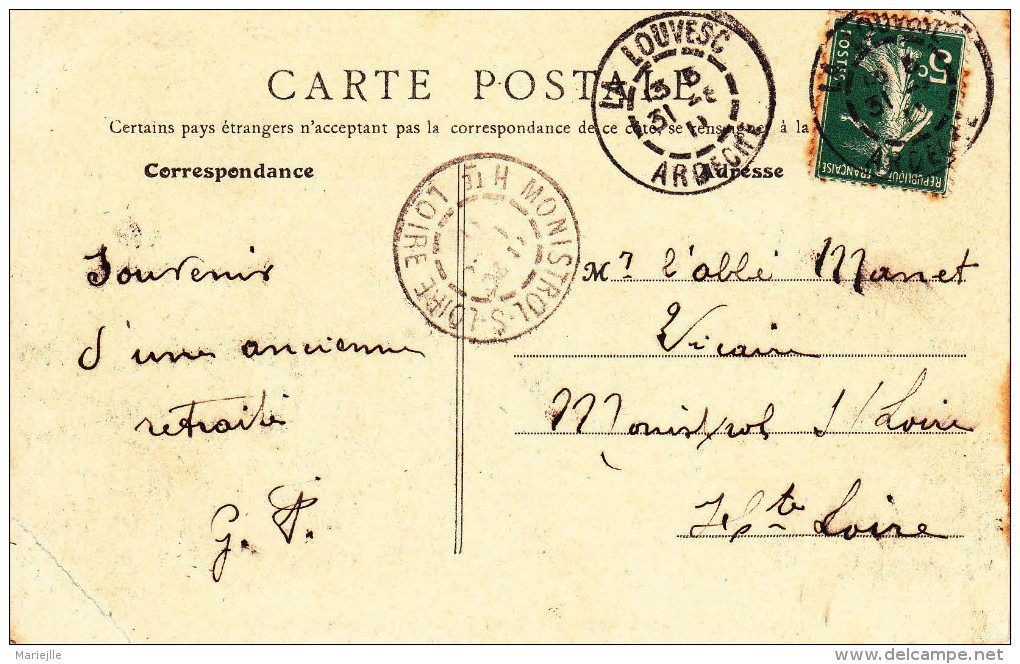 CARTE POSTALE
Certains pays étrangers n'acceptant pas la correspondance de ce côté, se renseigner à la
Correspondance
Adresse
LA LOUVESC
ARDECHE
LA LOUVESC
ARDECHE
5c
POSTES
REPUBLIQUE FRANÇAISE
MONISTROL-S-LOIRE
HTE LOIRE
Souvenir
d'une ancienne
retraite
G. P.
Mr l'abbé Manet
Vicaire
Monistrol S/ Loire
Hte Loire
Mariejlle
www.delcampe.net